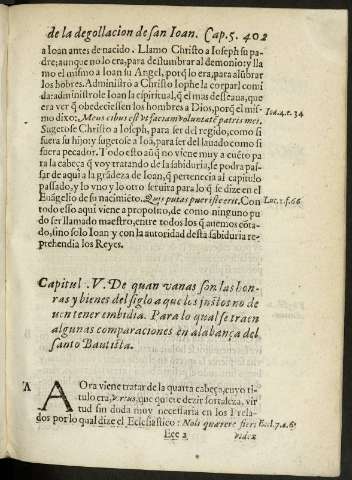 de la degollacion de san Ioan. Cap. 5. 402
a Ioan antes de nacido. Llamo Christo a Ioseph su pa-
dre; aunque no lo era, para deslumbrar al demonio: y lla
mo el mismo a Ioan su Angel, porq̃ lo era, para alũbrar
los hõbres. Administrò a Christo Iosephe la corpal comi
da: administrole Ioan la espiritual, q̃ el mas desseaua, que
era ver q̃ obedeciessen los hombres a Dios, porq̃ el mis-
mo dixo: Meus cibus est vt faciam voluntatẽ patris mei. Ioã.4.e.34
Sugetose Christo a Ioseph, para ser del regido, como si
fuera su hijo: y sugetose a Ioã, para ser del lauado como si
fuera pecador. Todo esto aũ q̃ no viene muy a cuẽto pa
ra la cabeça q̃ voy tratando de la sabiduria, se podra pas-
sar de aqui a la grãdeza de Ioan, q̃ pertenecia al capitulo
passado, y lo vno y lo otro seruira para lo q̃ se dize en el
Euãgelio de su nacimiẽto. Quis putas puer iste erit. Con Luc.1.f.66
todo esso aqui viene a proposito, de como ninguno pu
do ser llamado maestro, entre todos los q̃ auemos cõta-
do, sino solo Ioan y con la autoridad desta sabiduria re-
prehendia los Reyes.
Capitul. V. De quan vanas son las hon-
ras y bienes del siglo a que los justos no de
uen tener embidia. Para lo qual se traen
algunas comparaciones en alabança del
santo Bautista.
A
AOra viene tratar de la quarta cabeça, cuyo ti-
tulo era, virtus, que quiere dezir fortaleza, vir
tud sin duda muy necessaria en los Prela-
dos por lo qual dize el Eclesiastico: Noli quærere fieri Eccl.7.a.6
Eee 2 iudex